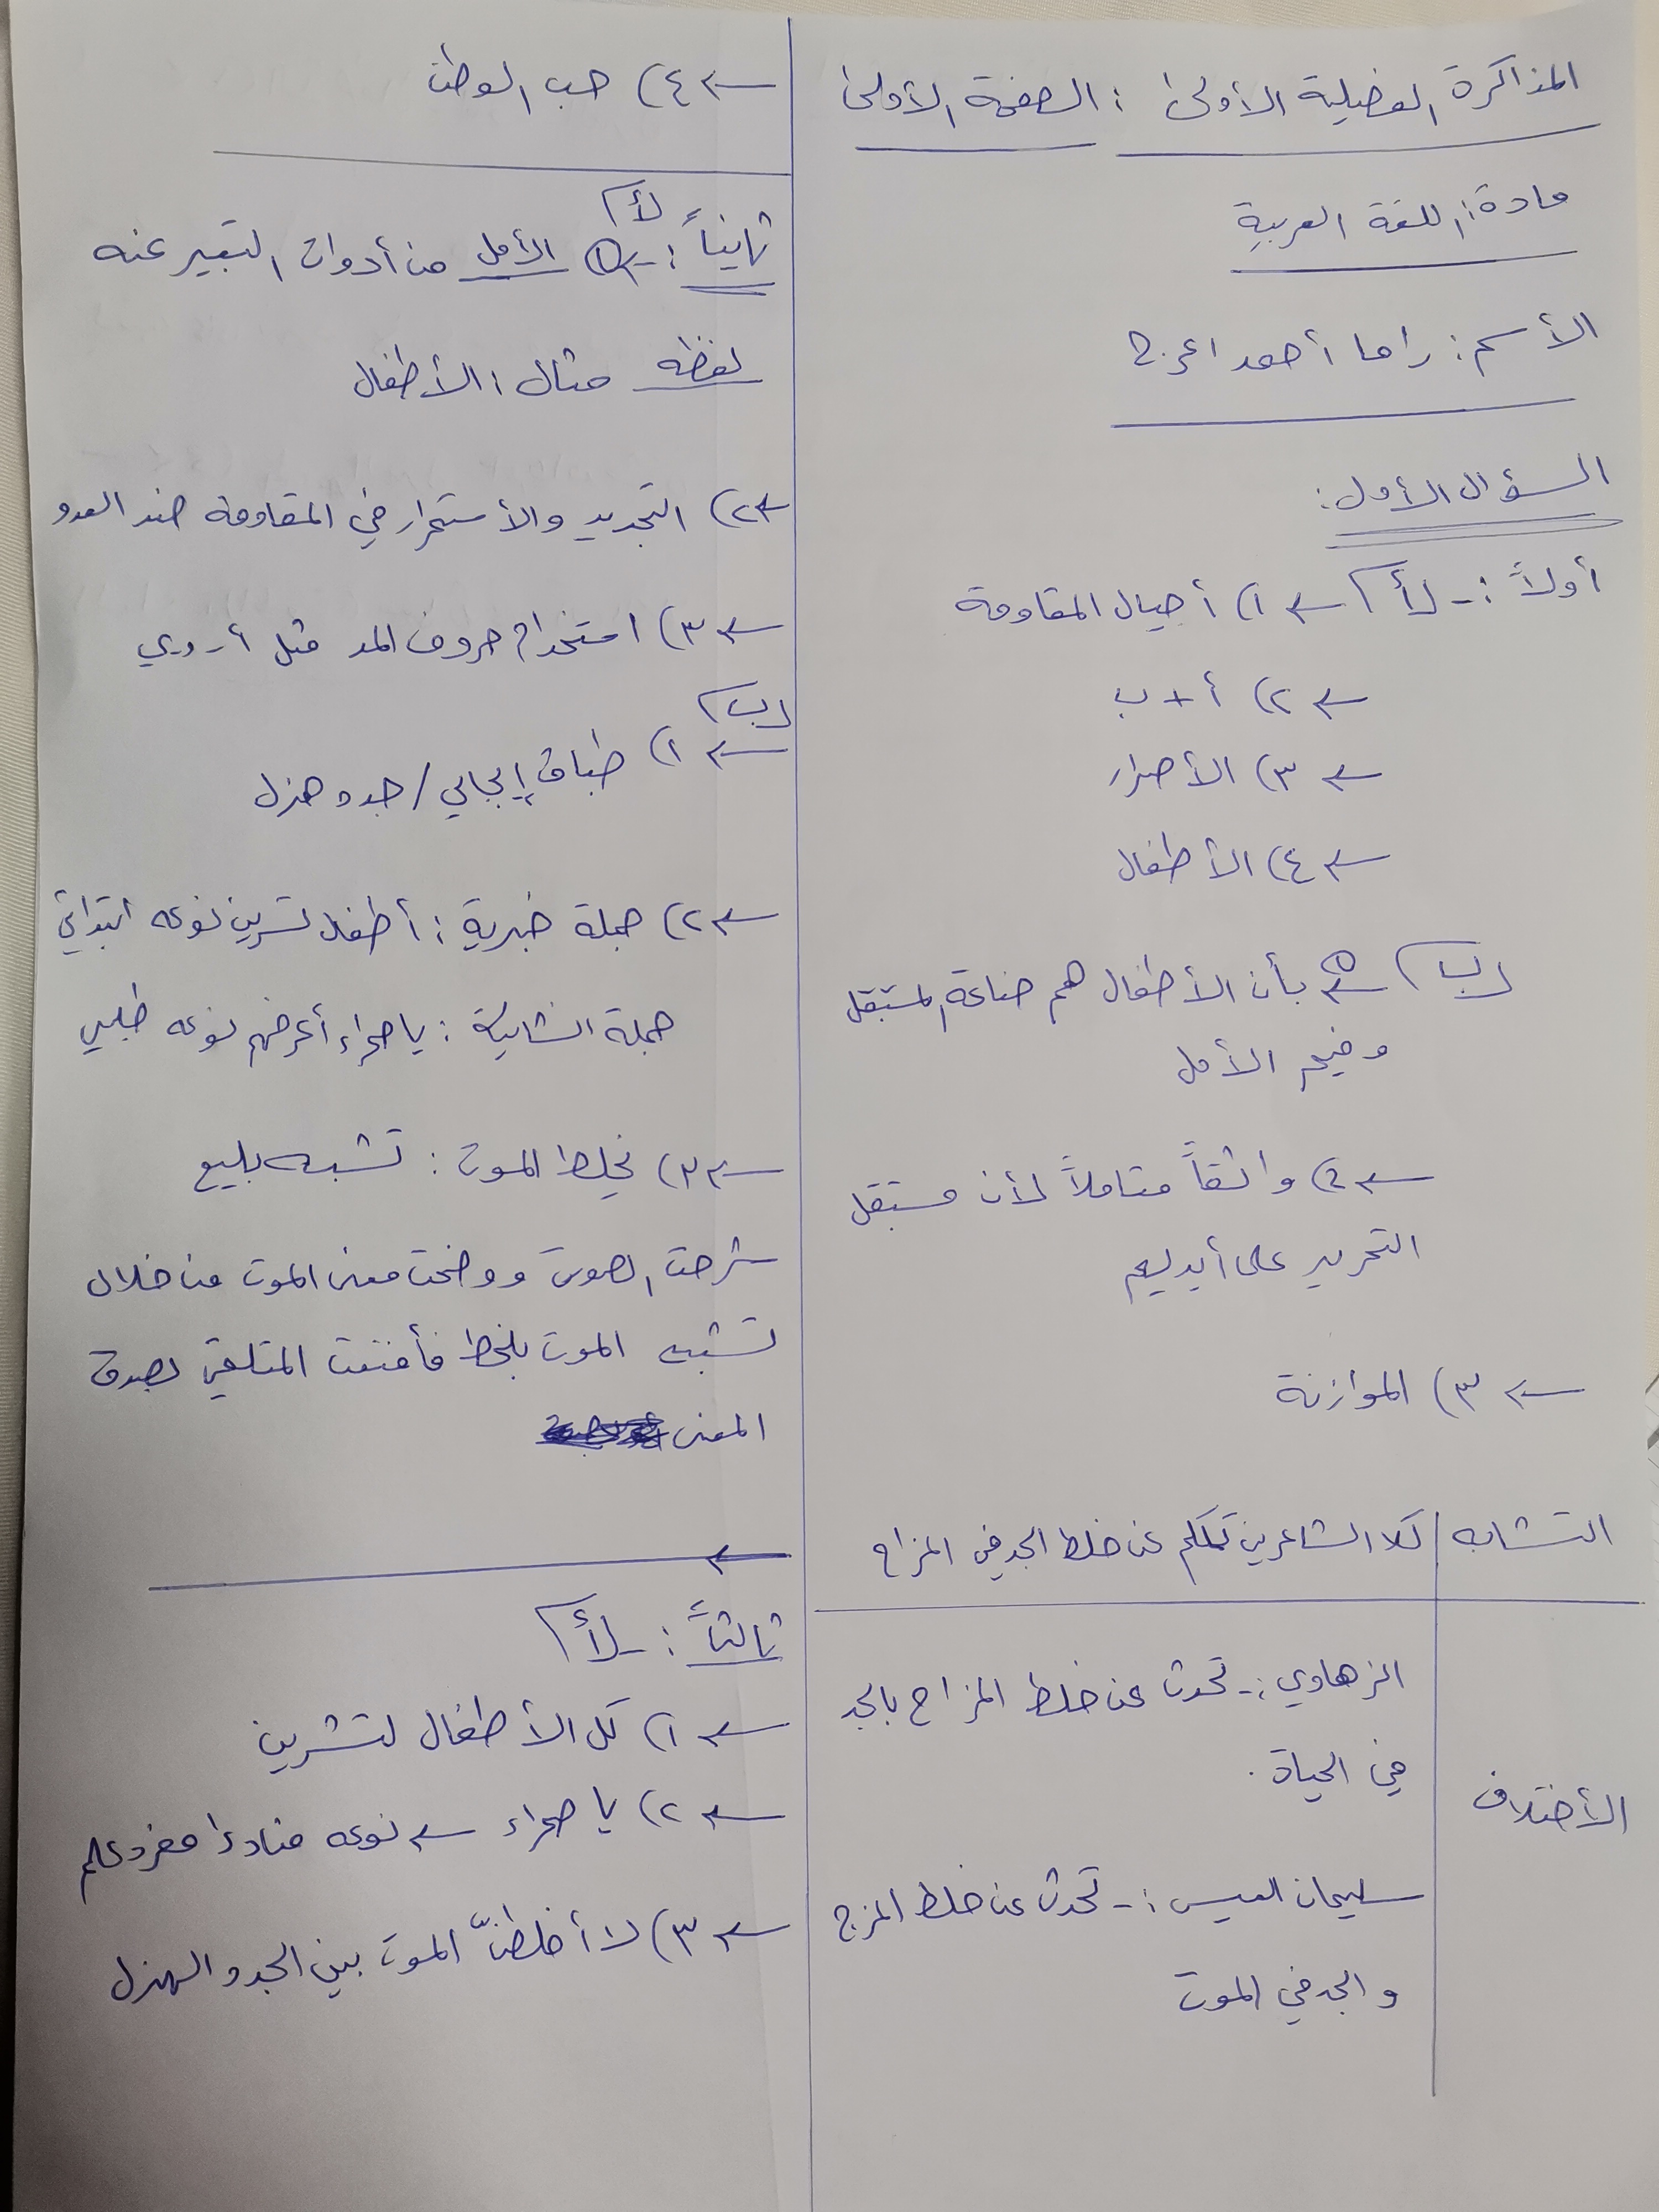 المذاكرة الفصلية الأولى : الصفحة الأولى
مادة: اللغة العربية
الأسم: راما أحمد اعرج
السؤال الأول:
أولاً :- أ) ← ١) أجيال المقاومة
← ٢) أ + ب
← ٣) الأصرار
← ٤) الأطفال
ب) ← ① بأن الأطفال هم صناعة المستقبل
وفيهم الأمل
← 2) واثقاً متاملاً لأن مستقبل
التحرير على أيديهم
← ٣) الموازنة
التشابه | كلا الشاعرين تكلم عن خلط الجد في المزاح
الزهاوي :- تحدث عن خلط المزاح بالجد
في الحياة.
الأختلاف
سليمان العيسى :- تحدث عن خلط المزح
و الجد في الموت
← ٤) حب الوطن
ثانياً :- أ) ① الأمل من أدوات التعبير عنه
لفظه مثال : الأطفال
← ٢) التجديد والأستمرار في المقاومة ضد العدو
← ٣) استخدام حروف المد مثل أ - و ي
ب)
← ١) طباق إيجابي / جد و هزل
← ٢) جملة خبرية : أطفل تشرين نوعه ابتدائي
جملة انشائية : يا صحراء أعرفهم نوعه طلبي
← ٣) نخلط الموت : تشبيه بليغ
شرحت الصورة ووضحت معنى الموت من خلال
تشبيه الموت بلخط فأقنعت المتلقي بصدق
المعنى
ثالثاً :- أ)
← ١) كل الأطفال لتشرين
← ٢) يا صحراء ← نوعه منادى مفرد علم
← ٣) لا أخلطنّ الموت بين الجد و الهزل